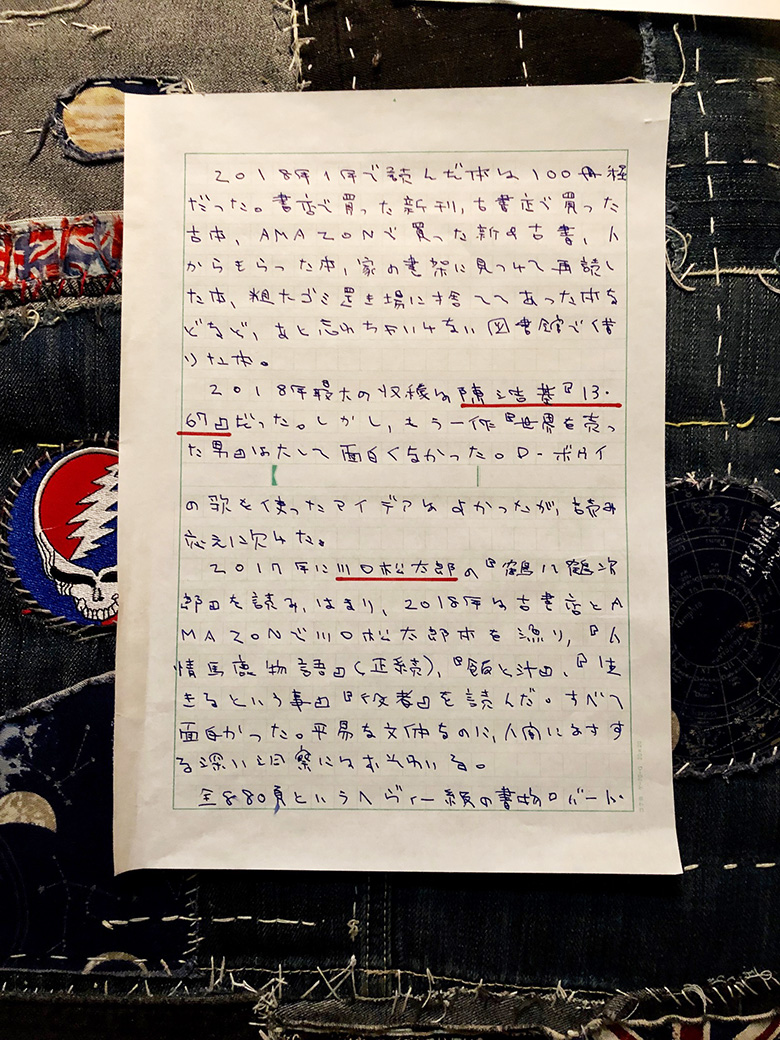 2018年1年で読んだ本は100冊程
だった。書店で買った新刊,古書店で買った
古本、AMAZONで買った新&古書、人
からもらった本,家の書架に見つけて再読し
た本、粗大ゴミ置き場に捨ててあった本な
どなど、あと忘れちゃいけない図書館で借
りた本。
2018年最大の収穫は陳浩基『13・
67』だった。しかし、もう一作『世界を売っ
た男』はたして面白くなかった。D・ボウイ
の歌を使ったアイデアはよかったが、読み
応えに欠けた。
2017年に川口松太郎の『鶴八鶴次
郎』を読み、はまり、2018年は古書店とA
MAZONで川口松太郎本を漁り、『人
情馬鹿物語』(正続)、『飯と汁』、『生
きるという事』『役者』を読んだ。すべて
面白かった。平易な文体なのに、人間に
る深い洞察には
全880頁というヘヴィー級の書物ロバート・